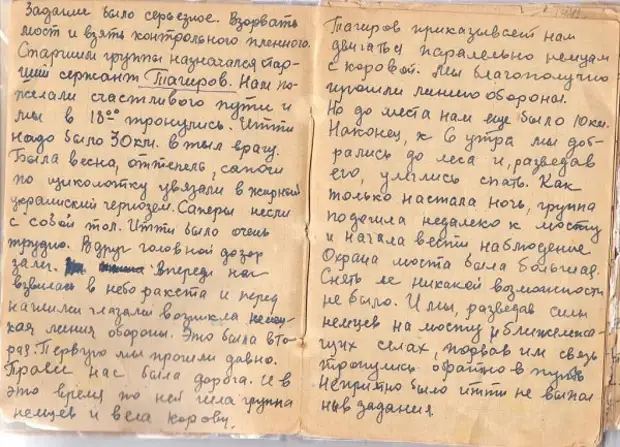 Задание было серьезное. Взорвать
мост и взять контрольного пленного.
Старшим группы назначался стар-
ший сержант Тагиров. Нам по-
желали счастливого пути и
мы в 18⁰⁰ тронулись. Идти
надо было 30 км. в тыл врагу.
Была весна, оттепель, сапоги
по щиколотку увязали в жирный
украинский чернозем. Саперы несли
с собой тол. Итти было очень
трудно. Вдруг головной дозор
залег. Впереди нас
взвилась в небо ракета и перед
нашими глазами возникла немец-
кая линия обороны. Это была вто-
рая. Первую мы прошли давно.
Правее нас была дорога. И в
это время по ней шла группа
немцев и вела корову.
Тагиров приказывает нам
двигаться паралельно немцам
с коровой. Мы благополучно
прошли линию обороны.
Но до места нам еще было 10 км.
Наконец, к 6 утра мы доб-
рались до леса и, разведав
его, улеглись спать. Как
только настала ночь, группа
подошла недалеко к мосту
и начала вести наблюдение
Охрана моста была большая.
Снять ее никакой возможности
не было. И мы, разведав силы
немцев на мосту и ближележа-
щих селах, подвав им связь
тронулись обратно в путь
Неприятно было итти не выпол-
нив задания.